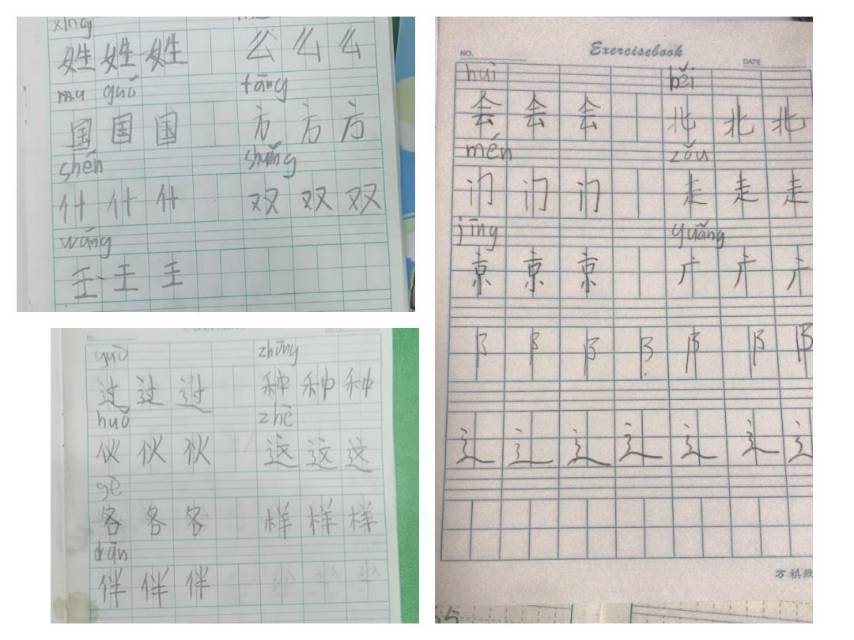 xìng
姓 姓 姓 么 么 么
guó fāng
国 国 国 方 方 方
shén shuāng
什 什 什 双 双 双
wáng
王 王 王
guò zhǒng
过 过 过 种 种 种
huǒ zhè
伙 伙 伙 这 这 这
gè
各 各 各 样 样 样
bàn
伴 伴 伴
NO. Exercisebook DATE
huì běi
会 会 会 北 北 北
mén zǒu
门 门 门 走 走 走
jīng guǎng
京 京 京 广 广 广
阝 阝 阝 阝 阝 阝 阝
辶 辶 辶 辶 辶 辶 辶